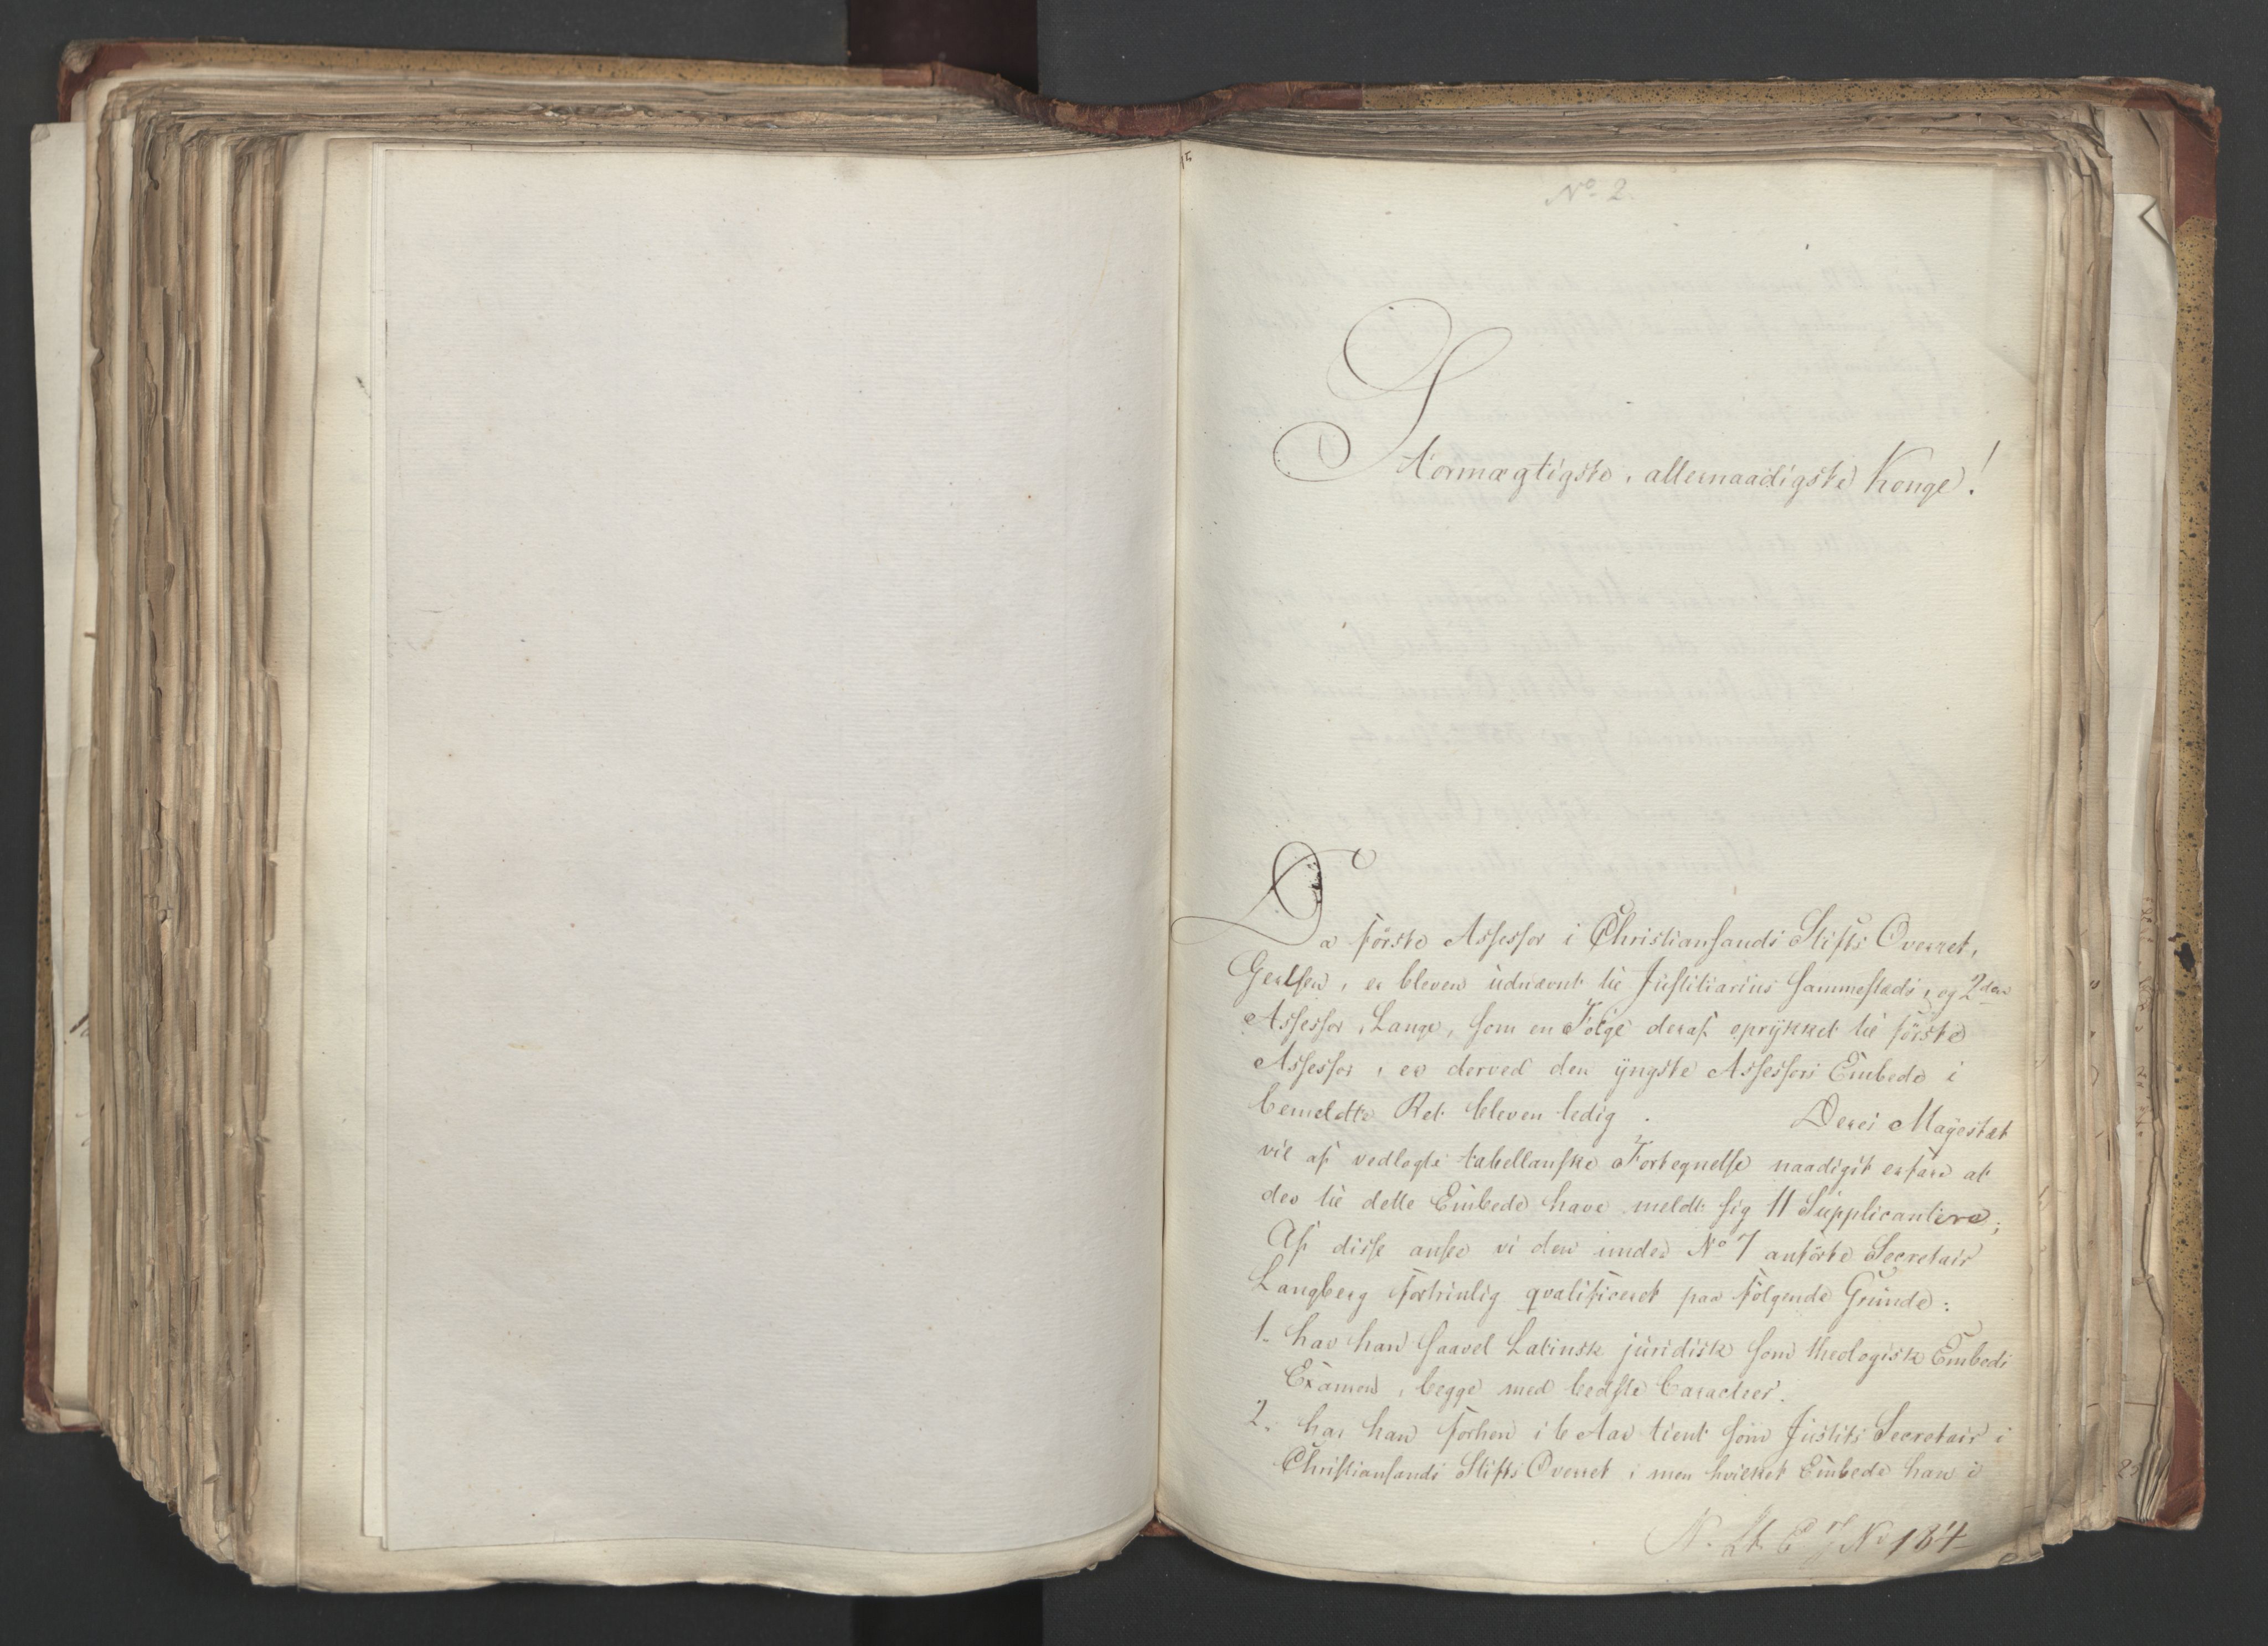 No 2.
Stormægtigste, allernaadigste Konge!
Da første Assessor i Christiansands Stifts Overret,
er bleven udnævnt til Justitiarius sammesteds, og 2den
Assessor, Lange, som en Følge deraf oprykket til første
Assessor, er derved den yngste Assessors Embede i
bemeldte Ret bleven ledig. Deres Majestæt
vil af vedlagte tabellariske Fortegnelse naadigst erfare at
der til dette Embede have meldt sig 11 Supplicantere;
Af disse ansee vi den under No 7 anførte Secretair
Langberg fortrinlig qvalificeret paa følgende Grunde:
1. har han saavel Latinsk juridisk som theologisk Embeds
Examen, begge med bedste Caracteer.
2. har han forhen i 6 Aar tient som Justits Secretair i
Christiansands Stifts Overret, men hvilket Embede han i
No 184